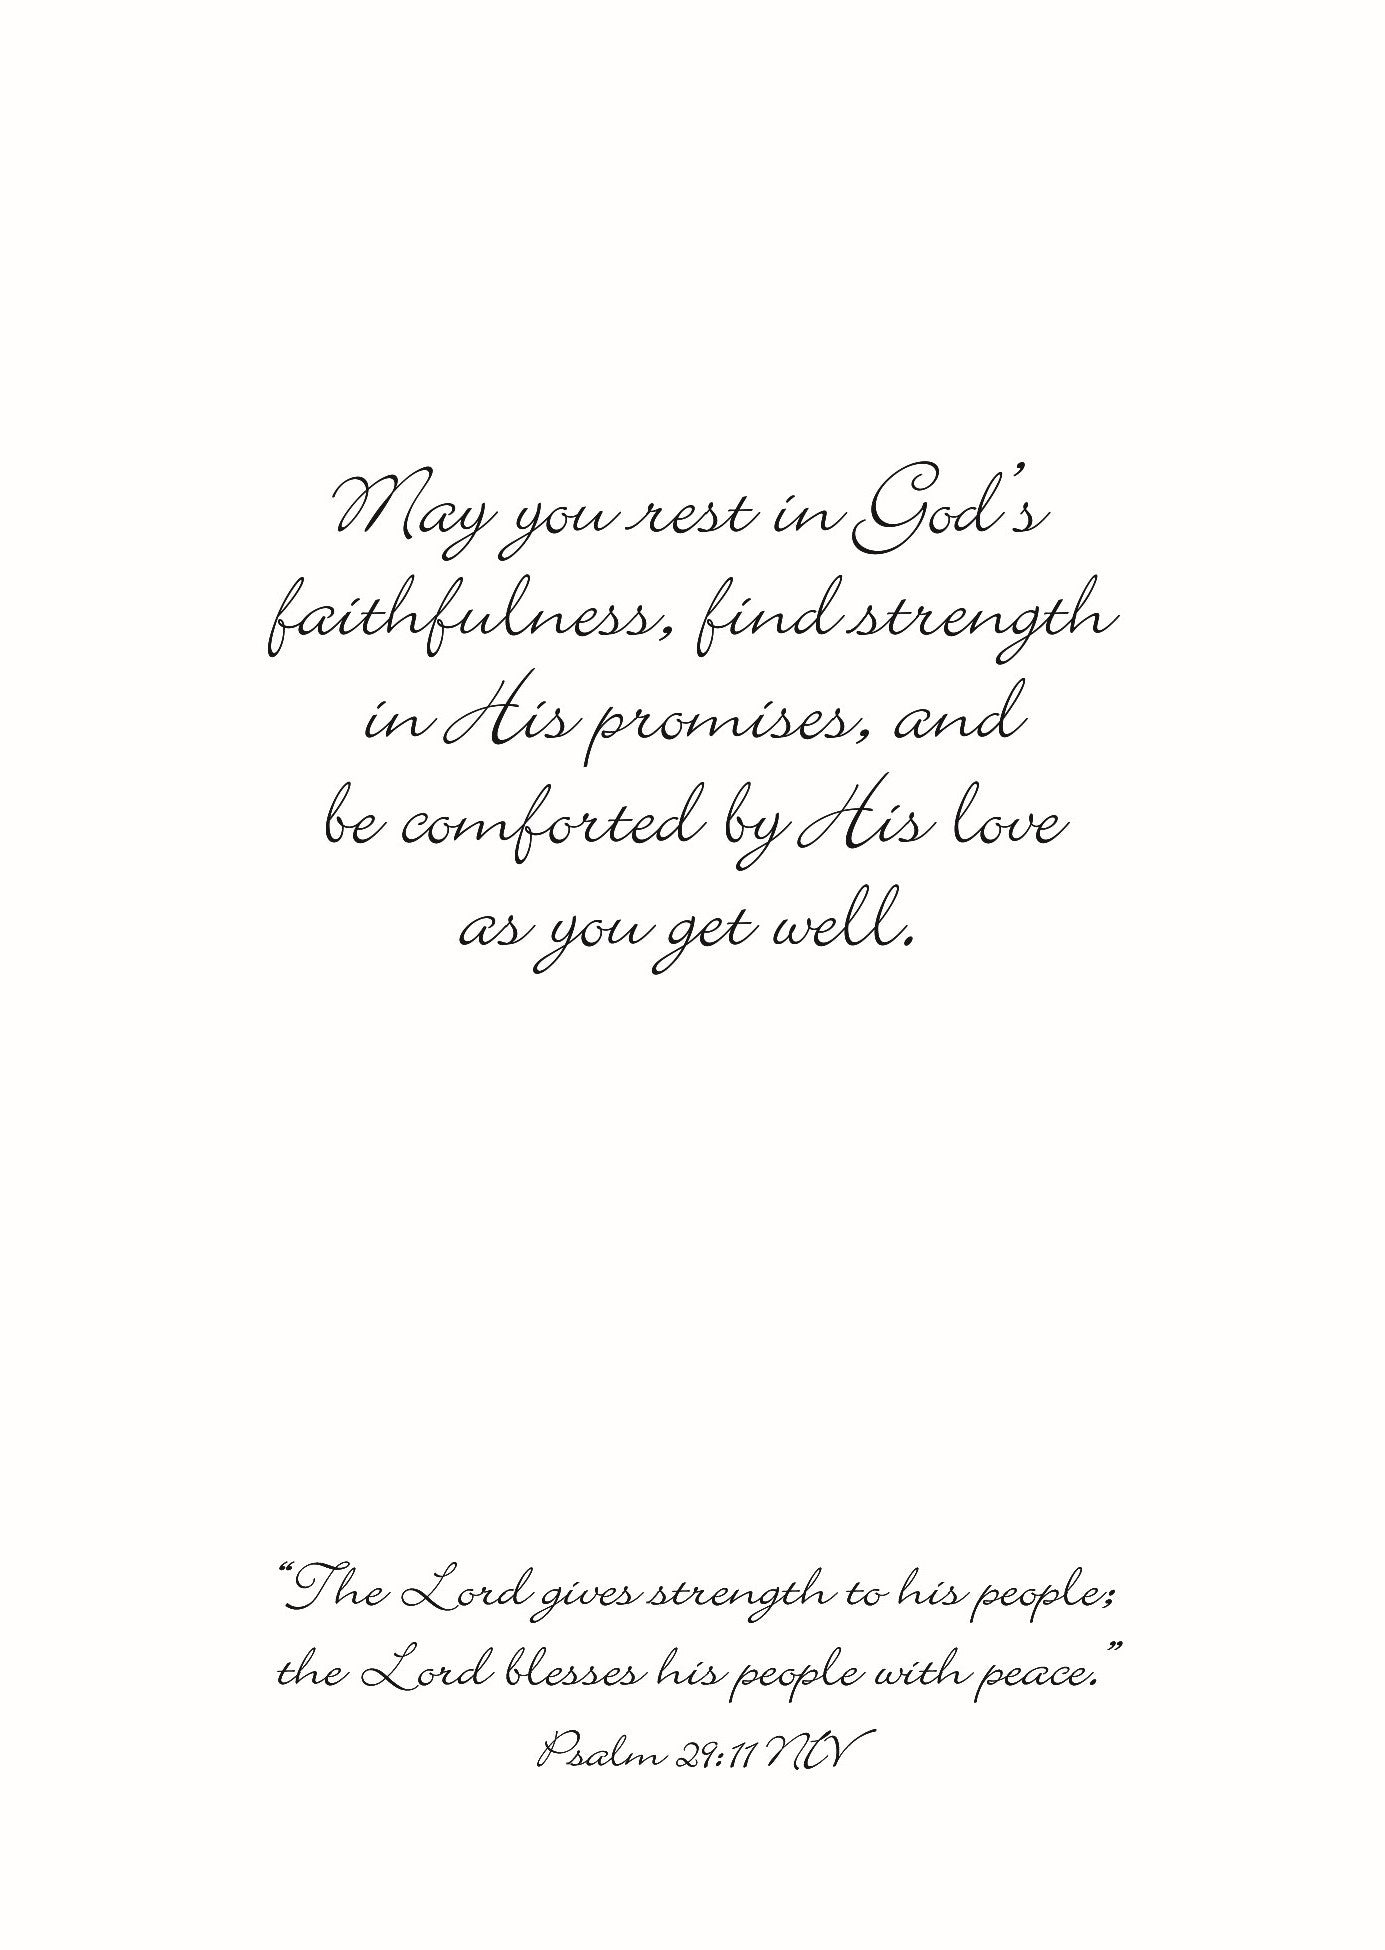 May you rest in God’s
faithfulness, find strength
in His promises, and
be comforted by His love
as you get well.
“The Lord gives strength to his people;
the Lord blesses his people with peace.”
Psalm 29:11 NIV